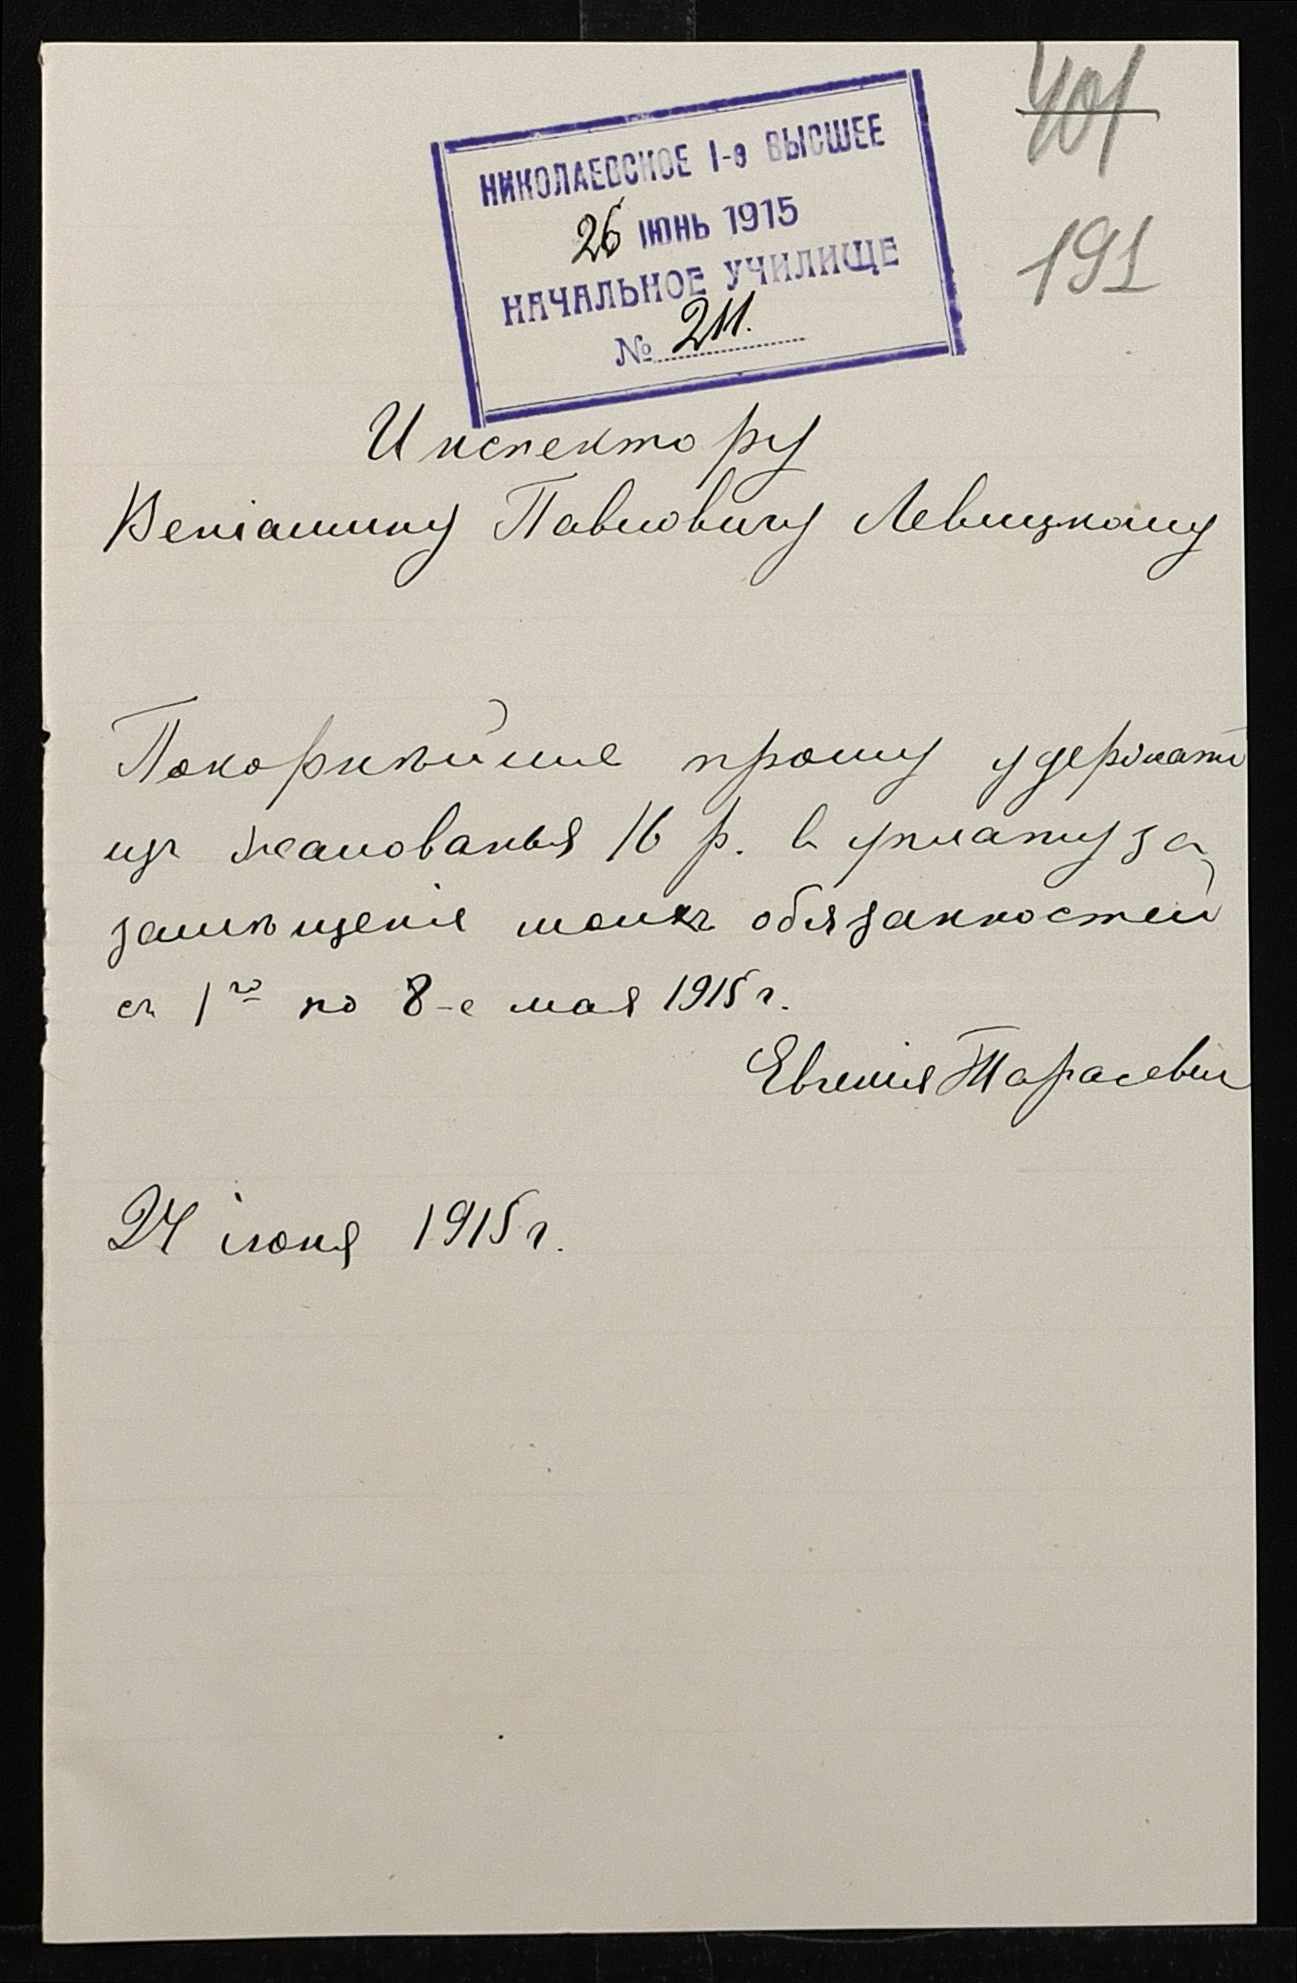 401
191
НИКОЛАЕВСКОЕ 1-е ВЫСШЕЕ
26 ІЮНЬ 1915
НАЧАЛЬНОЕ УЧИЛИЩЕ
№ 211.
Инспектору
Веніамину Павловичу Левицкому
Покорнѣйше прошу удержать
изъ жалованья 16 р. въ уплату за
замѣщеніе моихъ обязанностей
съ 1го по 8-е мая 1915 г.
Евгенія Тарасевич
24 іюня 1915 г.